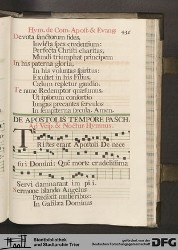 Hym. de Com. Apost. & Evang.
Devota sanctorum fides,
Invicta spes credentium:
Perfecta Christi charitas,
Mundi triumphat principem.
In his paterna gloria,
In his voluntas
Exultat in his Filius:
Cælum repletur gaudio.
Te nunc Redemptor quæsumus,
Ut ipsorum consortio
Jungas precantes servulos
In sempiterna sæcula. Amen.
DE APOSTOLIS TEMPORE PASCH.
Ad Vesp. & Noctur. Hymnus.
Tristes erant Apostoli De nece
sui Domini: Quem morte crudelissima
Servi damnarant impii.
Sermone blando Angelus
Prædixit
In Galilæa Dominus
Stiftsbibliothek
und Stadtarchiv Trier
gefördert von der
Deutschen Forschungsgemeinschaft
DFG